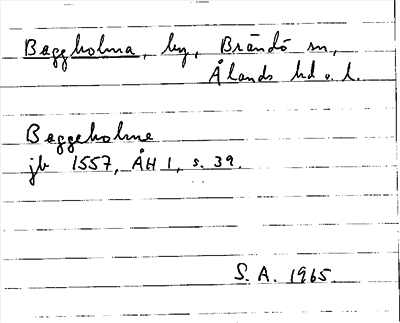 Baggholma, by, Brändö sn,
Ålands hd o. l.
Baggeholme
jb 1557, ÅH 1, s. 39.
S. A. 1965